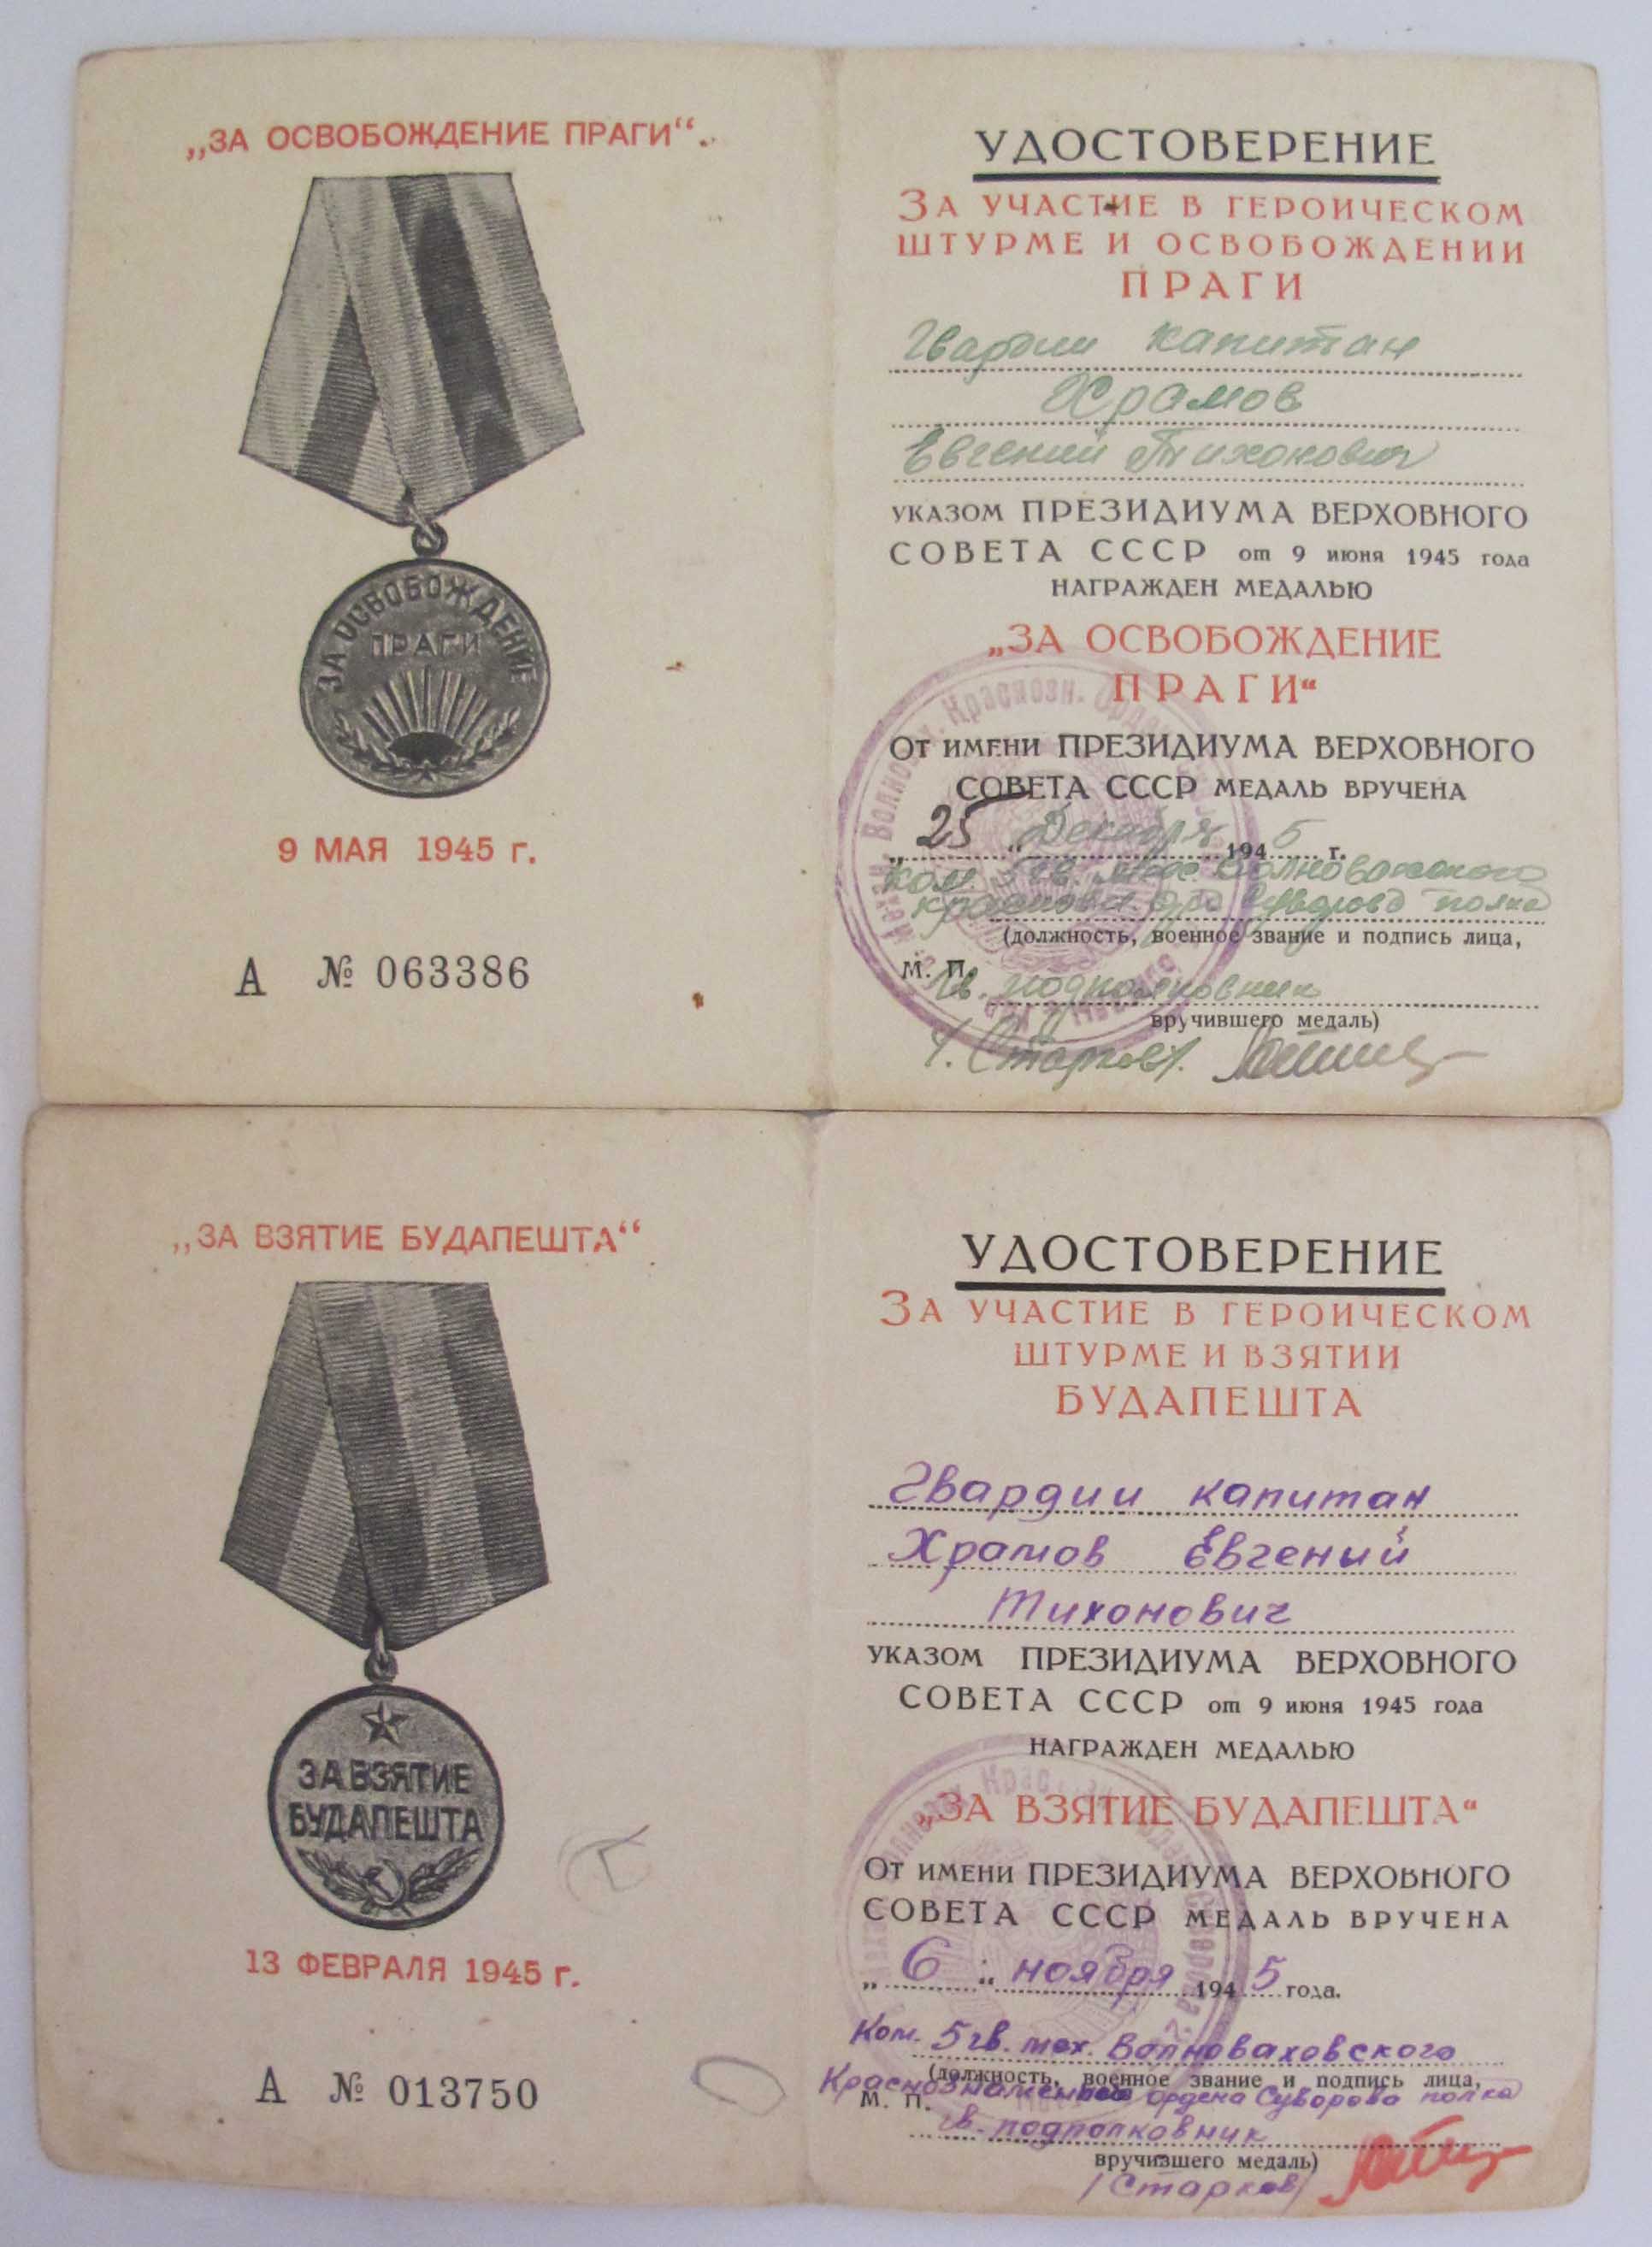 „ЗА ОСВОБОЖДЕНИЕ ПРАГИ“.
ЗА ОСВОБОЖДЕНИЕ
ПРАГИ
9 МАЯ 1945 г.
А № 063386
УДОСТОВЕРЕНИЕ
ЗА УЧАСТИЕ В ГЕРОИЧЕСКОМ
ШТУРМЕ И ОСВОБОЖДЕНИИ
ПРАГИ
Гвардии капитан
Храмов
Евгений Тихонович
УКАЗОМ ПРЕЗИДИУМА ВЕРХОВНОГО
СОВЕТА СССР от 9 июня 1945 года
НАГРАЖДЕН МЕДАЛЬЮ
„ЗА ОСВОБОЖДЕНИЕ
ПРАГИ“
ОТ ИМЕНИ ПРЕЗИДИУМА ВЕРХОВНОГО
СОВЕТА СССР МЕДАЛЬ ВРУЧЕНА
„25“ Декабря 1945 г.
Ком. 5 гв. мех. Волновахского
краснозн. орд. Суворова полка
(должность, военное звание и подпись лица,
М. П.
Гв. подполковник
вручившего медаль)
Старков
„ЗА ВЗЯТИЕ БУДАПЕШТА“
ЗА ВЗЯТИЕ
БУДАПЕШТА
13 ФЕВРАЛЯ 1945 г.
А № 013750
УДОСТОВЕРЕНИЕ
ЗА УЧАСТИЕ В ГЕРОИЧЕСКОМ
ШТУРМЕ И ВЗЯТИИ
БУДАПЕШТА
Гвардии капитан
Храмов Евгений
Тихонович
УКАЗОМ ПРЕЗИДИУМА ВЕРХОВНОГО
СОВЕТА СССР от 9 июня 1945 года
НАГРАЖДЕН МЕДАЛЬЮ
„ЗА ВЗЯТИЕ БУДАПЕШТА“
ОТ ИМЕНИ ПРЕЗИДИУМА ВЕРХОВНОГО
СОВЕТА СССР МЕДАЛЬ ВРУЧЕНА
„6“ ноября 1945 года.
Ком. 5 гв. мех. Волноваховского
(должность, военное звание и подпись лица,
Краснознаменного ордена Суворова полка
М. П.
гв. подполковник
вручившего медаль)
/Старков/